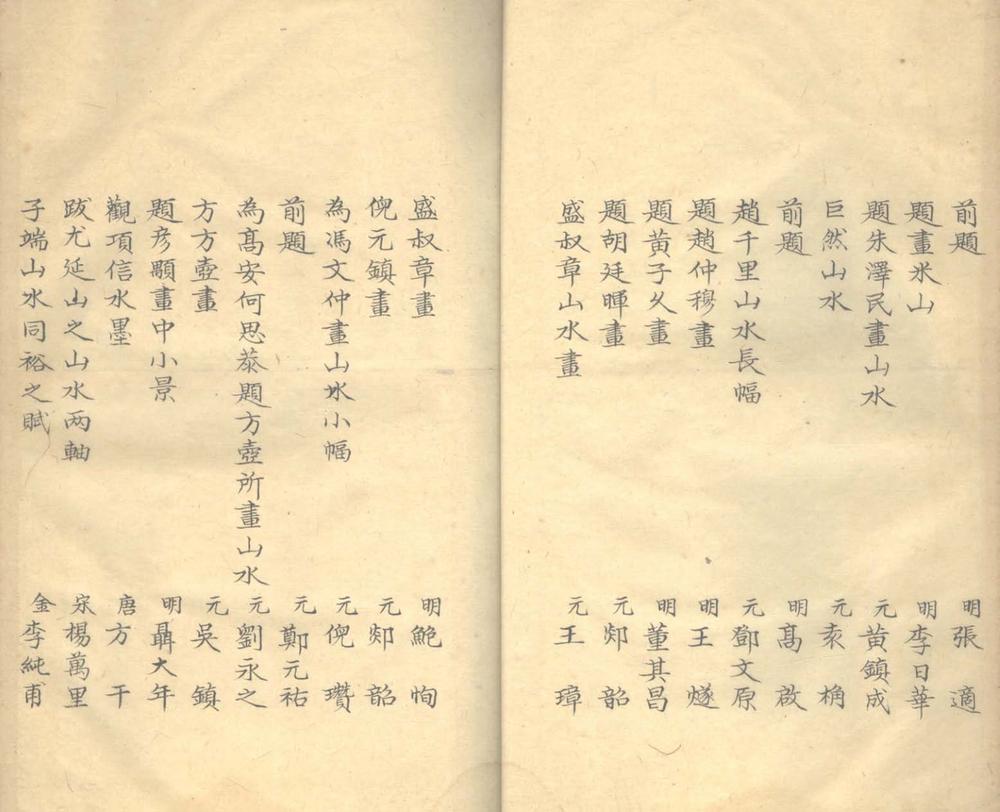 前題 明張適
題畫米山 明李日華
題朱澤民畫山水 元黃鎮成
巨然山水 元袁桷
前題 明高啟
趙千里山水長幅 元鄧文原
題趙仲穆畫 明王燧
題黃子久畫 明董其昌
題胡廷暉畫 元郯韶
盛叔章山水畫 元王璋
盛叔章畫 明鮑恂
倪元鎮畫 元郯韶
為馮文仲畫山水小幅 元倪瓚
前題 元鄭元祐
為高安何思恭題方壺所畫山水 元劉永之
方方壺畫 元吳鎮
題彥顒畫中小景 明聶大年
觀項信水墨 唐方干
跋尤延山之山水两軸 宋楊萬里
子端山水同裕之賦 金李純甫